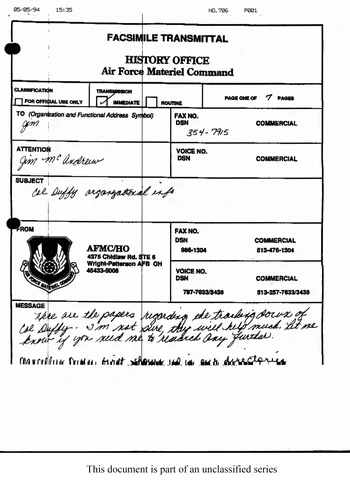 05/05/94 15:35 NO.786 P001
FACSIMILE TRANSMITTAL
HISTORY OFFICE
Air Force Materiel Command
CLASSIFICATION
FOR OFFICIAL USE ONLY
TRANSMISSION
IMMEDIATE
ROUTINE
PAGE ONE OF 7 PAGES
TO (Organization and Functional Address Symbol)
Jim
FAX NO.
DSN COMMERCIAL
354-7915
ATTENTION
Jim McAndrew
VOICE NO.
DSN COMMERCIAL
SUBJECT
Col Duffy organizational info
FROM
AIR FORCE MATERIEL COMMAND
AFMC/HO
4375 Chidlaw Rd. STE 6
Wright-Patterson AFB OH
45433-5006
FAX NO.
DSN COMMERCIAL
986-1304 513-476-1304
VOICE NO.
DSN COMMERCIAL
787-7633/3438 513-257-7633/3438
MESSAGE
Here are the papers regarding the tracking down of
Col Duffy. I'm not sure they will help much. Let me
know if you need me to research any further.
directories
This document is part of an unclassified series